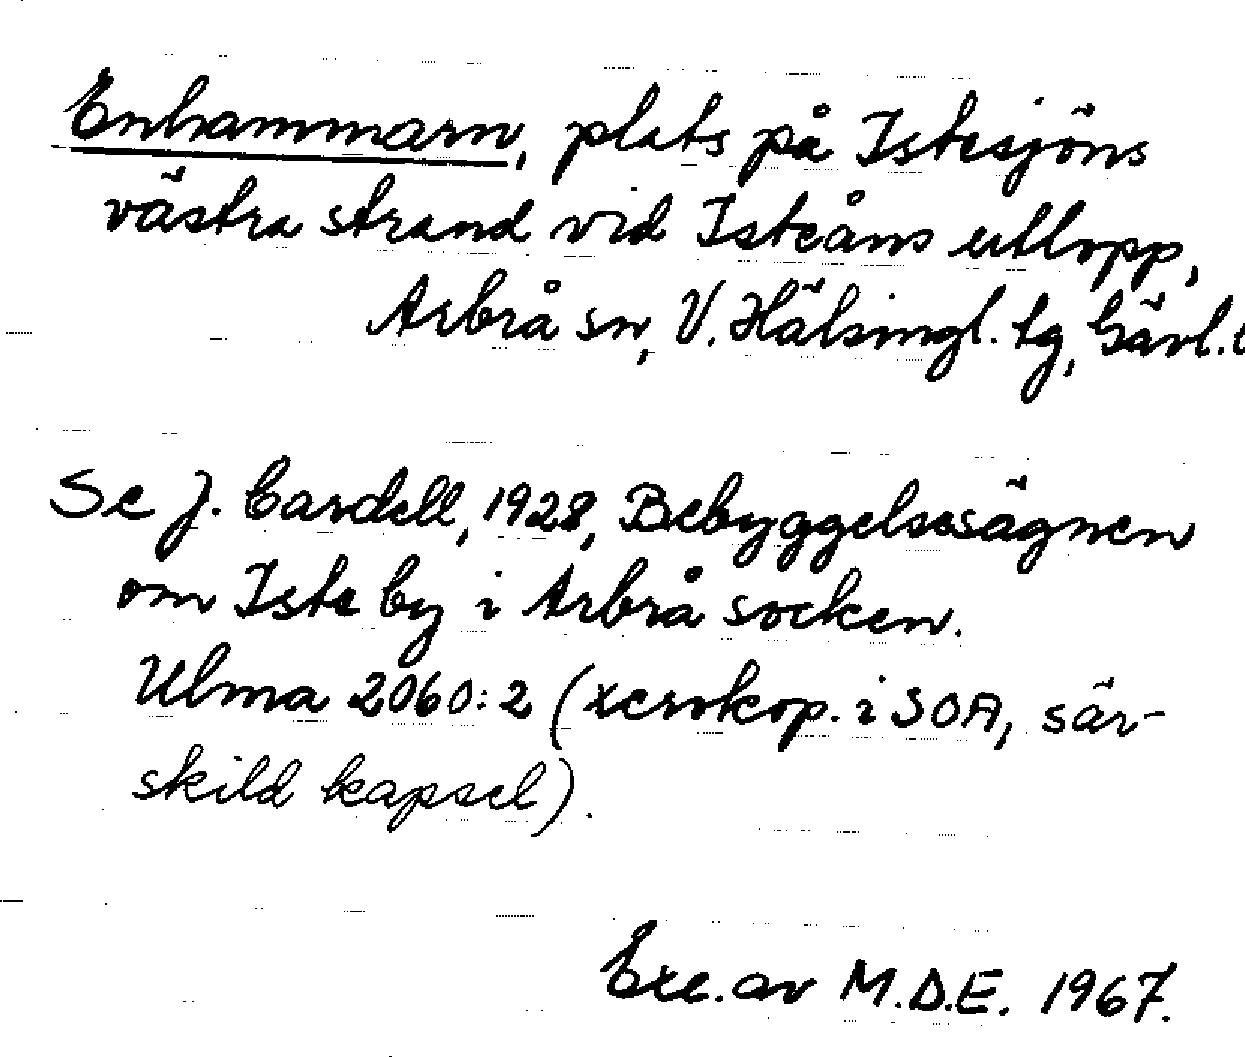 Enhammarn, plats på Istesjöns
västra strand vid Isteåns utlopp,
Arbrå sn, V. Hälsingl. tg, Gävl.l
Se J. Cardell, 1928, Bebyggelsesägnen
om Iste by i Arbrå socken.
Ulma 2060:2 (xerokop. i SOA, sär-
skild kapsel).
Exc. av M.D.E. 1967.